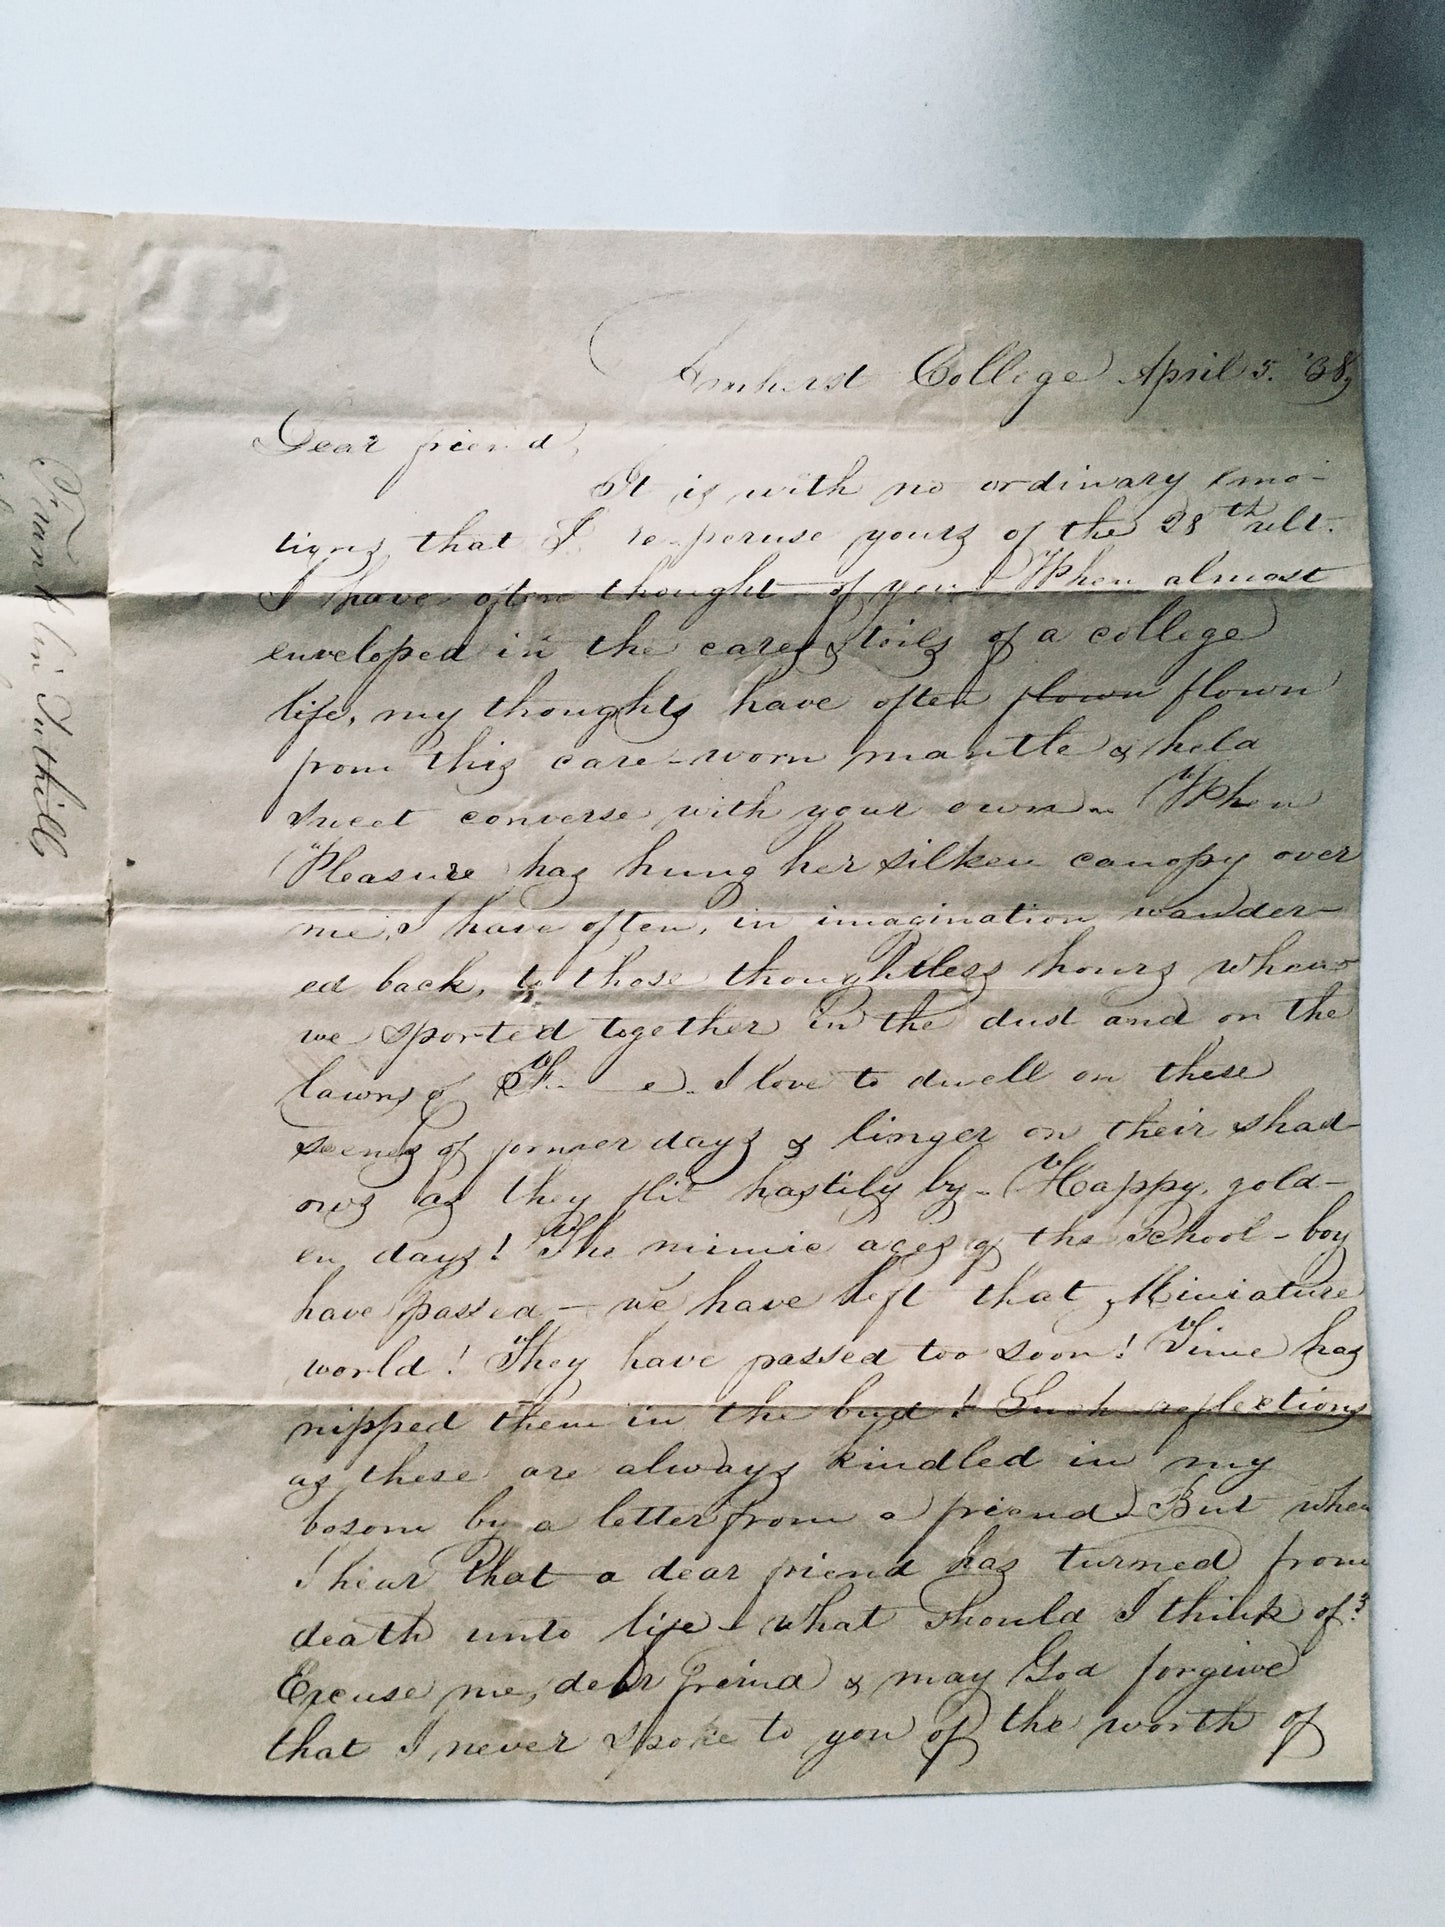 Amherst College April 5. '38,
Dear friend,
It is with no ordinary emo-
tions that I re-peruse yours of the 28th ult.
I have often thought of you! When almost
enveloped in the cares & toils of a college
life, my thoughts have often flown flown
from this care-worn mantle & held
sweet converse with your own. When
Pleasure has hung her silken canopy over
me, I have often, in imagination wander-
ed back, to those thoughtless hours when
we sported together in the dust and on the
lawns of F. e. I love to dwell on these
scenes of former days & linger on their shad-
ows as they flit hastily by. Happy, gold-
en days! The mimic ages of the School-boy
have passed - we have left that Miniature
world! They have passed too soon! Time has
nipped them in the bud! Such reflections
as these are always kindled in my
bosom by a letter from a friend. But when
I hear that a dear friend has turned from
death unto life - what should I think of?
Excuse me, dear friend & may God forgive
that I never spoke to you of the worth of
Frank lin Tuthill